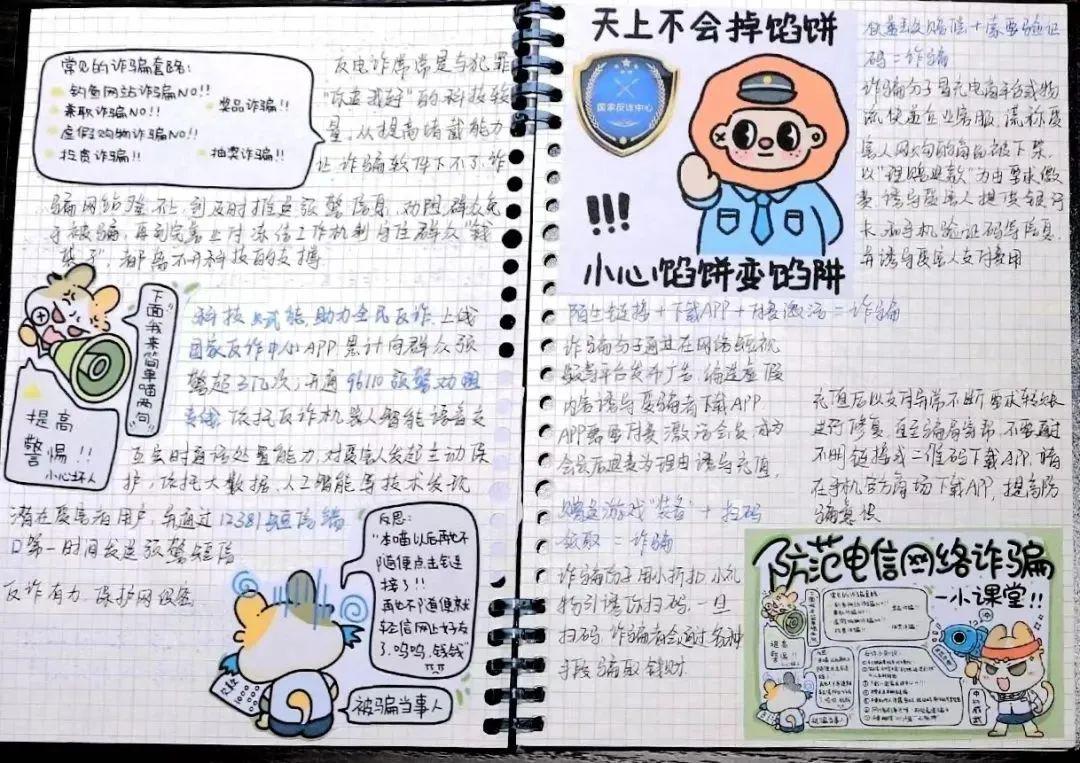 常见的诈骗套路:
钓鱼网站诈骗NO!!
兼职诈骗NO!!
奖品诈骗!!
虚假购物诈骗NO!!
投资诈骗!!
抽奖诈骗!!
反电诈常常是与犯罪
"你追我赶"的科技较
量,从提高堵截能力
让诈骗软件下不了,诈
骗网络登不上,到及时推送预警信息,劝阻群众免
于被骗,再到完善止付冻结工作机制守住群众"钱
袋子",都离不开科技的支撑
科技赋能,助力全民反诈,上线
国家反诈中心APP累计向群众预
警超3亿次;开通96110预警劝阻
专线,依托反诈机器人智能语音交
互实时通话处置能力,对受害人发起主动保
护,依托大数据、人工智能等技术发现
潜在受害者用户,并通过12381短信端
口第一时间发送预警短信
反诈有力,保护网银
下面我来简单喵两句
提高
警惕!!
小心坏人
反思:
"本喵以后再也不
随便点击链
接了!!
再也不随便就
轻信网上好友
了,呜呜,钱钱"
被骗当事人
天上不会掉馅饼
国家反诈中心
!!!
小心馅饼变馅阱
快递丢失赔偿+索要验证
码=诈骗
诈骗分子冒充电商平台或物
流快递企业客服,谎称受
害人网购的商品被下架,
以"理赔退款"为由要求缴
费,诱导受害人提供银行
卡和手机验证码等信息,
并诱导受害人支付费用
陌生链接+下载APP+付费激活=诈骗
诈骗分子通过在网络短视
频等平台发布广告,编造虚假
内容诱导受骗者下载APP.
APP需要付费激活会员,成为
会员后退费为理由诱导充值,
充值后以支付异常不断要求转账
进行修复,直至骗局告帮,不要通过
不明链接或二维码下载APP,请
在手机官方商场下载APP,提高防
骗意识
赠送游戏"装备"+扫码
领取=诈骗
诈骗分子用小折扣小礼
物引诱你扫码,一旦
扫码,诈骗者会通过各种
手段骗取钱财
防范电信网络诈骗
一小课堂!!